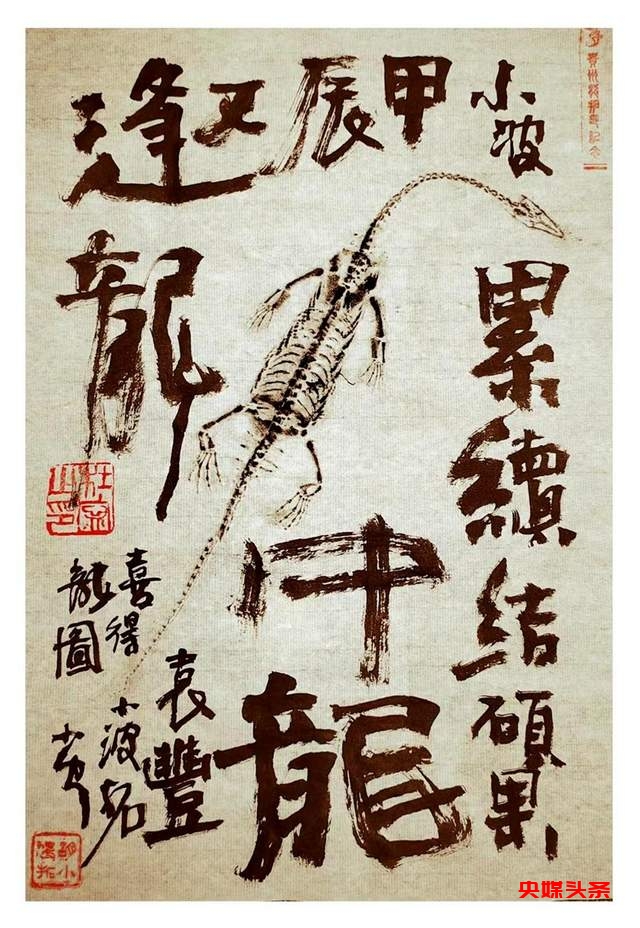 小波
累續結碩果
甲辰又
逢龍
龍
袁豐
喜得
龍圖
小波拓
央媒头条